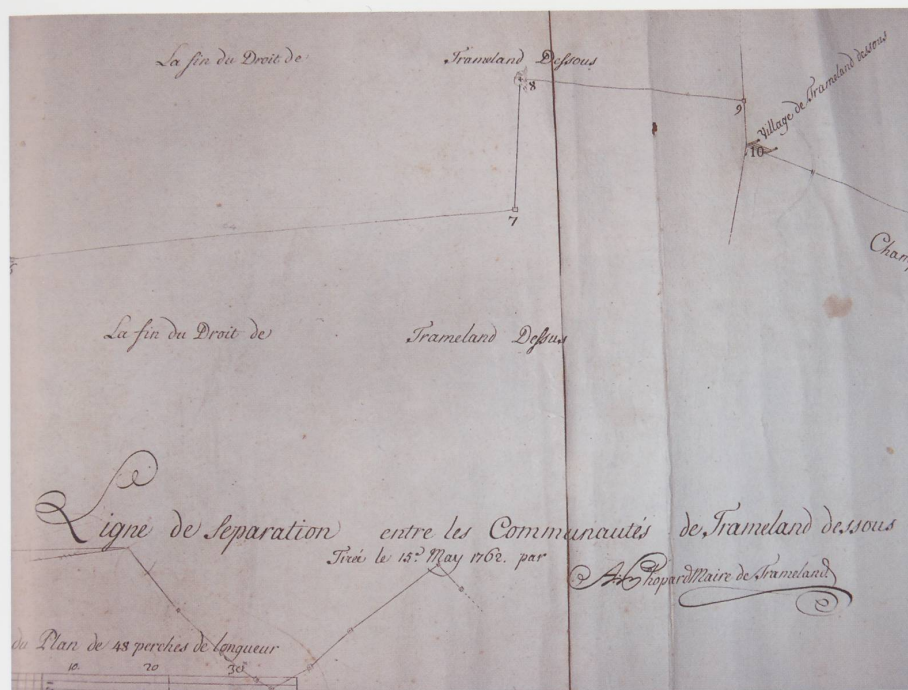 La fin du Droit de Trameland Dessous
8
9
Village de Trameland dessous
10
7
Cham
La fin du Droit de Trameland Dessus
Ligne de Separation entre les Communautés de Trameland dessous
Tireé le 15.e May 1762. par
Chopard Maire de Trameland
du Plan de 48 perches de longueur
10. 20 30